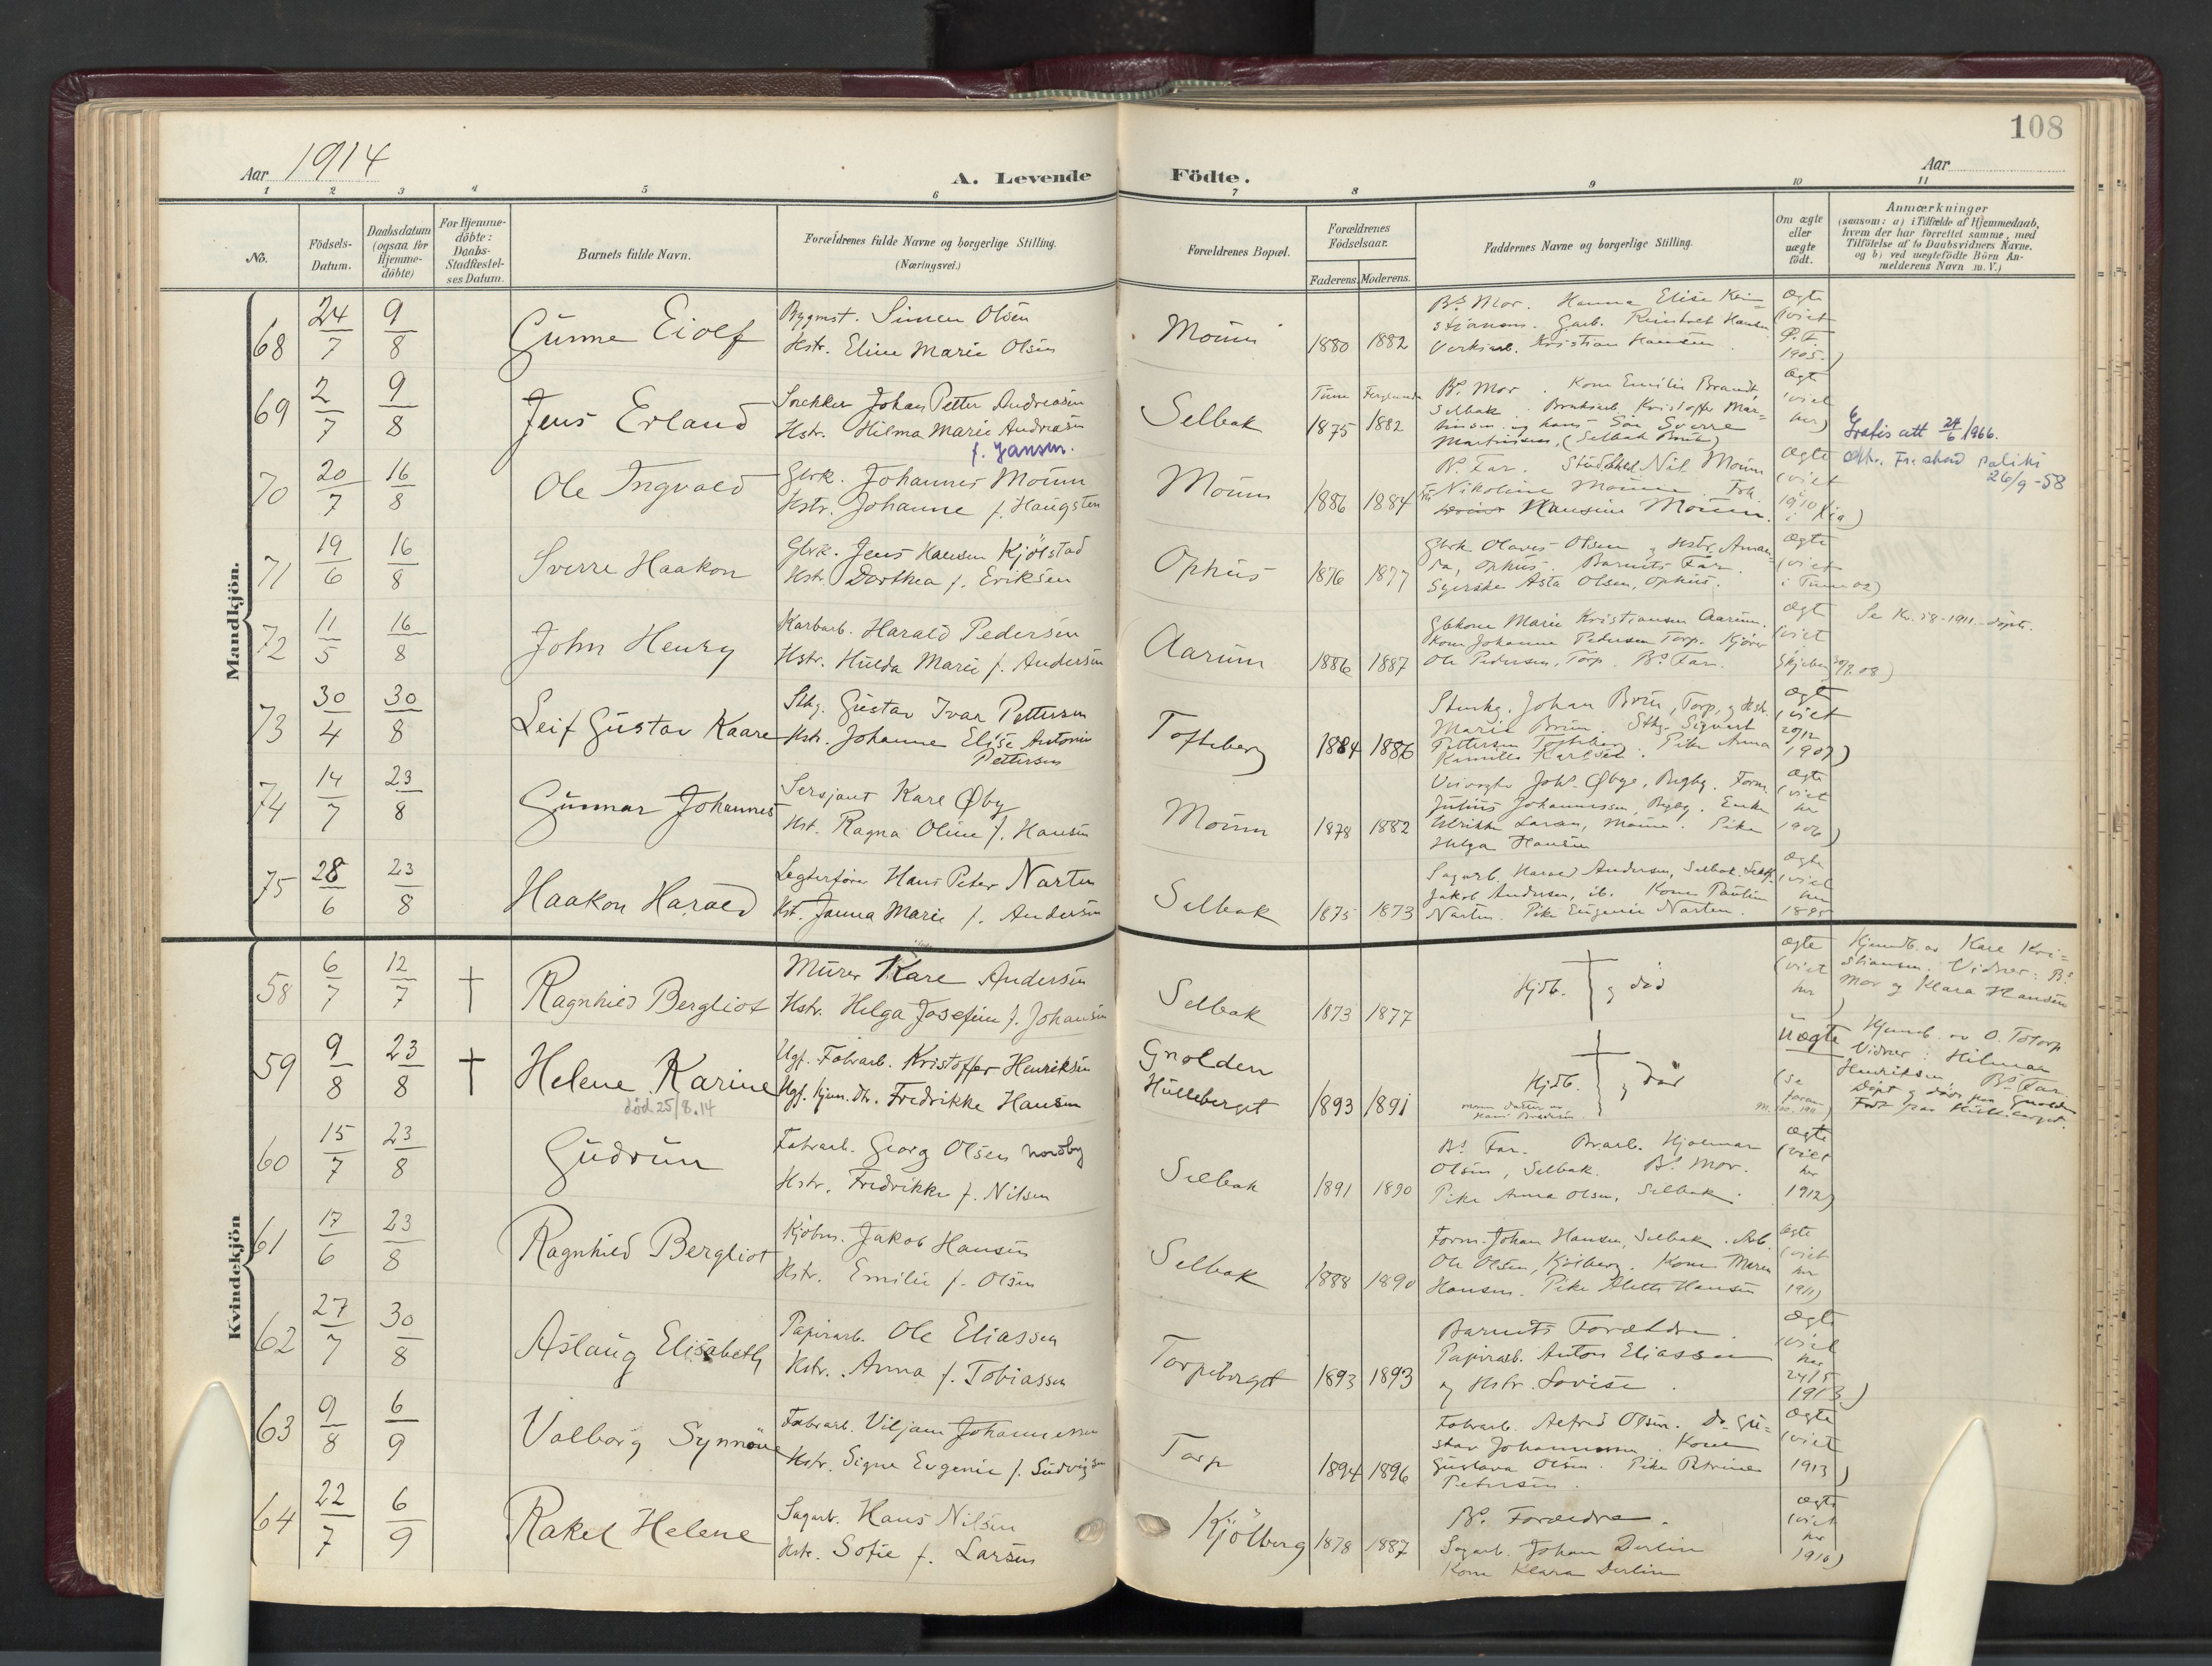 108
Aar 1914
A. Levende Födte.
Aar
1 2 3 4 5 6 7 8 9 10 11
No.
Födsels-
Datum.
Daabsdatum
(ogsaa for
Hjemme-
döbte)
For Hjemme-
döbte:
Daabs-
Stadfæstel-
ses Datum.
Barnets fulde Navn.
Forældrenes fulde Navne og borgerlige Stilling.
(Næringsvei.)
Forældrenes Bopæl.
Forældrenes
Födselsaar.
Faderens. Moderens.
Faddernes Navne og borgerlige Stilling.
Om ægte
eller
uægte
födt.
Anmærkninger
(saasom: a) i Tilfælde af Hjemmedaab,
hvem der har forrettet samme, med
Tilföielse af to Daabsvidners Navne.
og b) ved uægtefödte Börn An-
melderens Navn m. V.)
Mandkjön.
68 24/7 9/8 Gunne Eiolf
Bygmst. Simen Olsen
Hstr. Eline Marie Olsen
Moum 1880 1882
Bs. Mor. Hanna Elise Kri-
stiansen. Garb. Reinholt Hansen
Verksarb. Kristian Hansen
ægte
(viet
1905.)
69 2/7 9/8 Jens Erland
Snekker Johan Petter Andreasen
Hstr. Hilma Marie Andreasen
f. Jansen.
Selbak Tune 1875 1882
Bs. Mor. Kone Emilie Brandt,
Selbak. Bruksarb. Kristoffer Mar-
tinsen og hans Søn Sverre
Martinsen, (Selbak Brug)
ægte
(viet
her)
Gratis att 24/6 1966.
26/9-58
70 20/7 16/8 Ole Ingvald
Gbrk. Johannes Moum
Hstr. Johanne f. Haugsten
Moum 1886 1884
Bs. Far. Nil. Moum
Nikoline Moum. Frk.
Hansine Moum.
ægte
(viet
1910
71 19/6 16/8 Sverre Haakon
Gbrk. Jens Hansen Kjölstad
Hstr. Dorthea f. Eriksen
Ophus 1876 1877
Gbrk. Olaves Olsen og Hstr. Aman-
da, Ophus. Barnets Far.
Syerske Asta Olsen, Ophus.
ægte
(viet
i Tune 02)
72 11/5 16/8 John Henry
Karbarb. Harald Pedersen
Hstr. Hulda Marie f. Andersen
Aarum 1886 1887
Gbkone Marie Kristiansen Aarum.
Kone Johanne Pedersen Torp. Kjører
Ole Pedersen, Torp. Bs. Far.
ægte
(viet
73 30/4 30/8 Leif Gustav Kaare
Sthg. Gustav Ivar Pettersen
Hstr. Johanne Elise Antonie
Pettersen
Tofteberg 1884 1886
Stenhg. Johan Brun, Torp, og Hstr.
Marie Brun. Sthg. Sigvart
Pettersen Tofteberg. Pike Anna
Kamilla Karlsen.
ægte
(viet
20/12
1907)
74 14/7 23/8 Gunnar Johannes
Sersjant Karl Øby
Hst. Ragna Oline f. Hansen
Moum 1878 1882
Veivogter Johs. Øbye, Rygby. Form.
Julius Johannessen, Rygby. Enke
Ulrikke Larsen, Moum. Pike
Helga Hansen
ægte
(viet
her
1906)
75 28/6 23/8 Haakon Harald
Legterfører Hans Peter Narten
Hst. Janna Marie f. Andersen
Selbak 1875 1873
Sagarb. Harald Andersen, Selbak.
Jakob Andersen, ib. Kone Pauline
Narten. Pike Eugenie Narten.
ægte
(viet
her
1895
Kvindekjön
58 6/7 12/7 † Ragnhild Bergliot
Murer Karl Andersen
Hstr. Helga Josefine f. Johansen
Selbak 1873 1877
Hjdb. og död
ægte
(viet
her
)
Hjemdb. av Karl Kri-
stiansen. Vidner: Bs.
Mor og Klara Hansen
59 9/8 23/8 † Helene Karine
död 25/8.14
Ugf. Fabrarb. Kristoffer Henriksen
Ugf. Hjem. Dtr. Fredrikke Hansen
Gnolden
Hulleberget 1893 1891
Hjdb. og död
uægte
Hjemdb. av O. Totorp
Vidner: Hilmar
Henriksen Bs. Far.
Döpt og död paa Gnolden
Födt paa Hulleberget.
60 15/7 23/8 Gudrun
Fabrarb. Georg Olsen Nordby
Hstr. Fredrikke f. Nilsen
Selbak 1891 1890
Bs. Far. Brarb. Hjalmar
Olsen, Selbak. Bs. Mor.
Pike Anna Olsen, Selbak.
ægte
(viet
her
1912)
61 17/6 23/8 Ragnhild Bergliot
Kjöbm. Jakob Hansen
Hstr. Emilie f. Olsen
Selbak 1888 1890
Form. Johan Hansen, Selbak. Arb.
Ole Olsen, Kjölberg. Kone Maren
Hansen. Pike Aletta Hansen
ægte
(viet
her
1911)
62 27/7 30/8 Aslaug Elisabeth
Papirarb. Ole Eliassen
Hstr. Anna f. Tobiassen
Torpeberget 1893 1893
Barnets Forældre.
Papirarb. Anton Eliassen
og Hstr. Lovise.
ægte
(viet
her
24/5
1913)
63 9/8 6/9 Valborg Synnøve
Fabrarb. Viljam Johannessen
Hstr. Signe Eugenie f. Ludvigsen
Torp 1894 1896
Fabrarb. Alfred Olsen. Do. Gu-
stav Johannessen. Kone
Gustava Olsen. Pike Petrine
Petersen.
ægte
(viet
1913)
64 22/7 6/9 Rakel Helene
Sagarb. Hans Nilsen
Hstr. Sofie f. Larsen
Kjölberg 1878 1887
Bs. Forældre.
Sagarb. Johan Derlin
Kone Klara Derlin
ægte
(viet
her
1910)